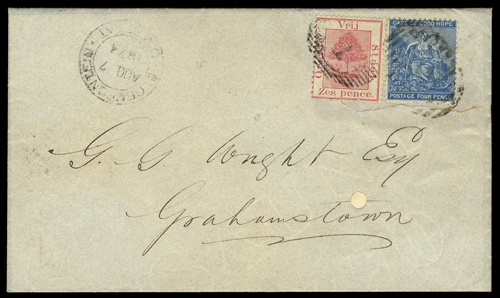 BLOEMFONTEIN
AUG 7
1874
Vrij
Sta
Zes pence.
CAPE OF GOOD HOPE
POSTAGE FOUR PENCE
G. G. Wright Esq
Grahamstown